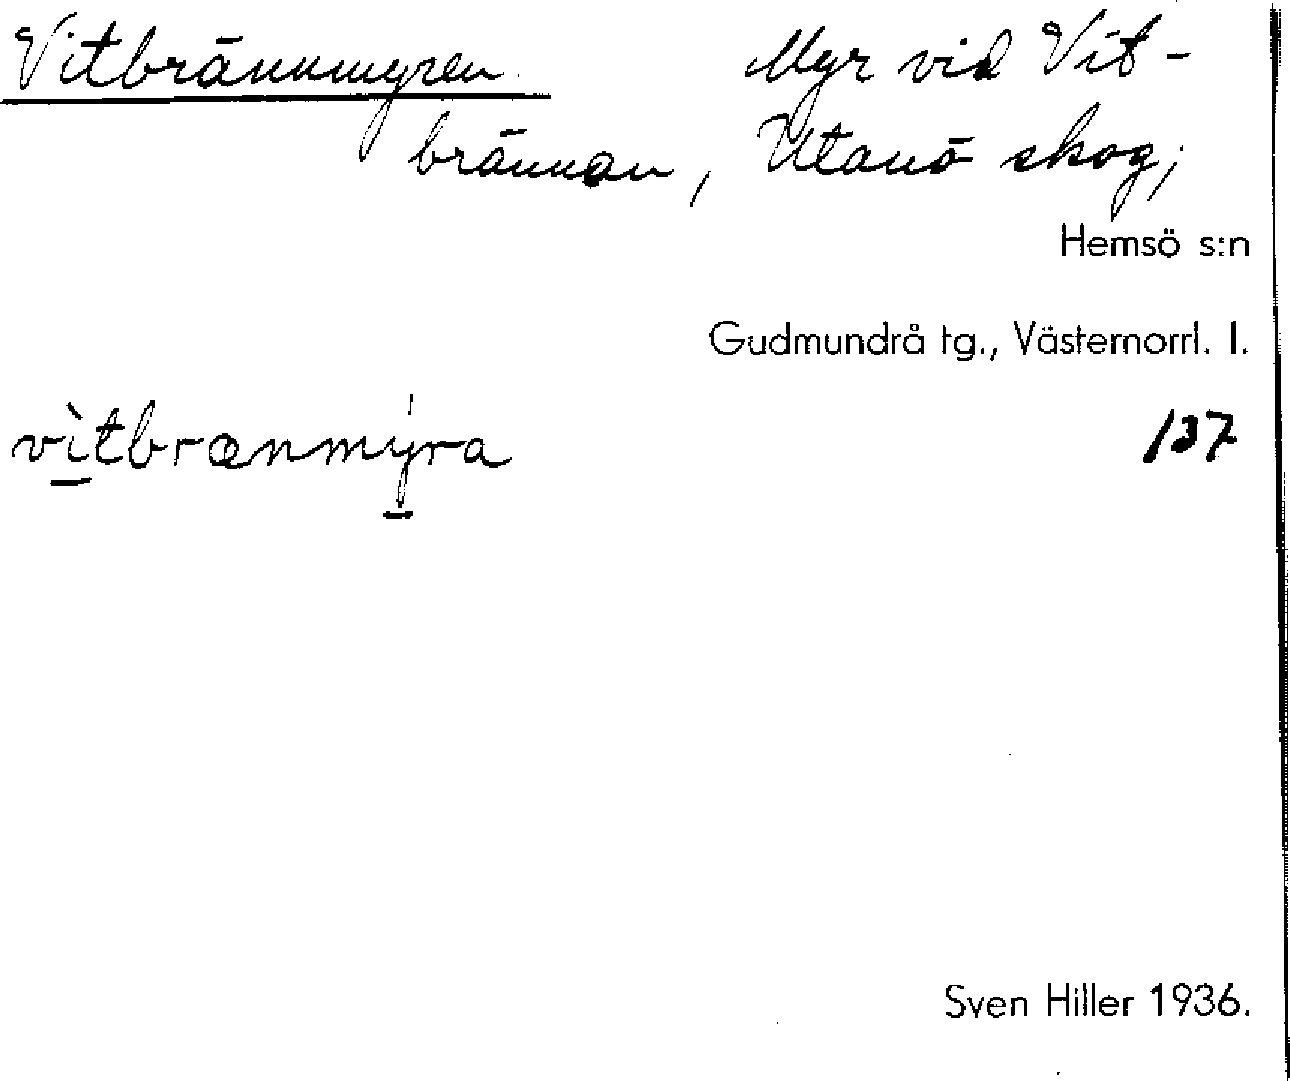 Vitbrännmyren Myr vid Vit-
brännan, Utanö skog;
Hemsö s:n
Gudmundrå tg., Västernorrl. l.
vìtbrænmýra 137
Sven Hiller 1936.